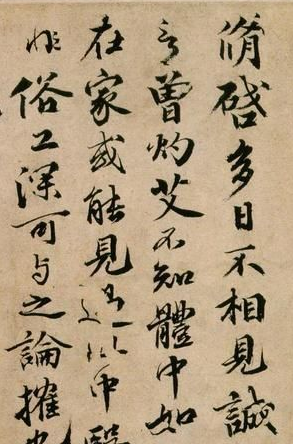 脩啓多日不相見誠
言曾灼艾不知體中如
在家或能見過此中醫
非俗工深可与之論搉也